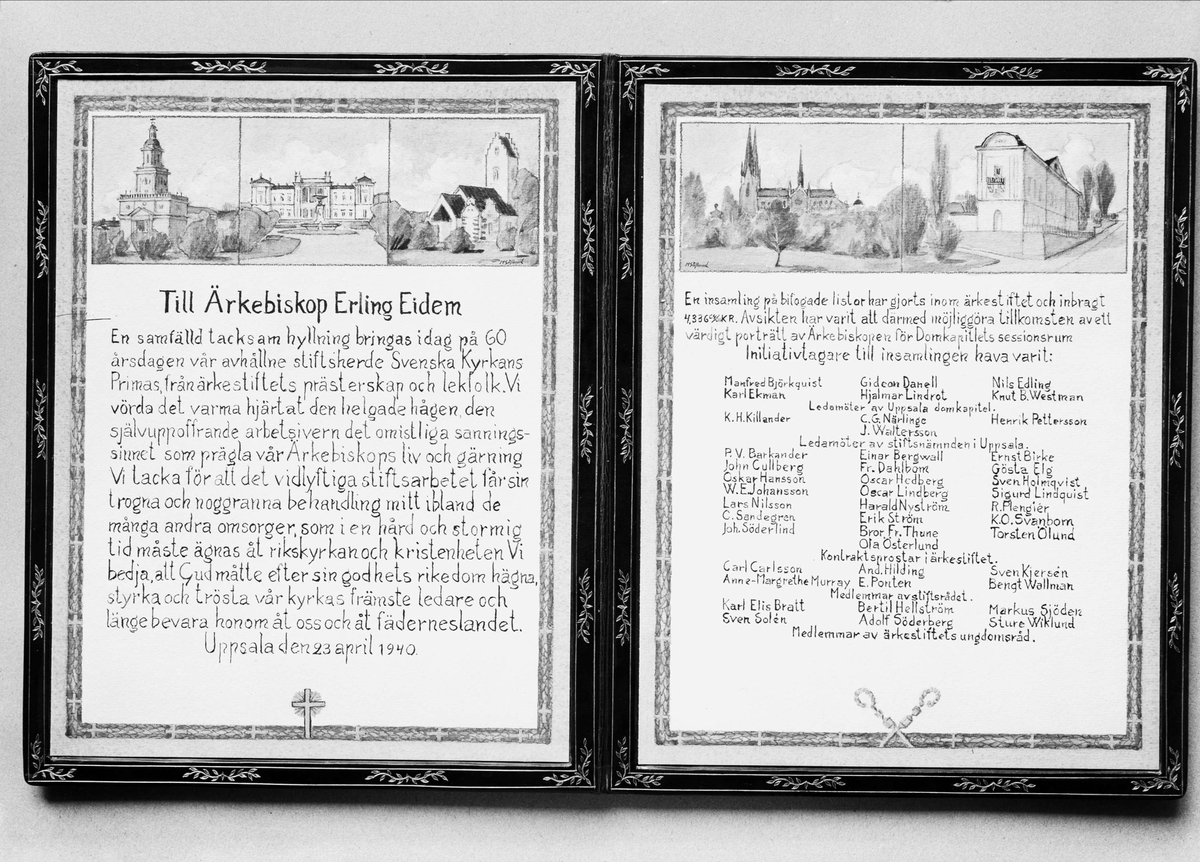 Till Ärkebiskop Erling Eidem
En samfälld tacksam hyllning bringas idag på 60
årsdagen vår avhållne stiftsherde Svenska Kyrkans
Primas, från ärkestiftets prästerskap och lekfolk. Vi
vörda det varma hjärtat den helgade hågen, den
självuppoffrande arbetsivern det omistliga sannings-
sinnet som prägla vår Ärkebiskops liv och gärning
Vi tacka för att det vidlyftiga stiftsarbetet får sin
trogna och noggranna behandling mitt ibland de
många andra omsorger, som i en hård och stormig
tid måste ägnas åt rikskyrkan och kristenheten Vi
bedja, att Gud måtte efter sin godhets rikedom hägna,
styrka och trösta vår kyrkas främste ledare och
länge bevara honom åt oss och åt fäderneslandet.
Uppsala den 23 april 1940.
En insamling på bifogade listor har gjorts inom ärkestiftet och inbragt
KR. Avsikten har varit att därmed möjliggöra tillkomsten av ett
värdigt porträtt av Ärkebiskopen för Domkapitlets sessionsrum
Initiativtagare till insamlingen hava varit:
Manfred Björkquist Gideon Danell Nils Edling
Karl Ekman Hjalmar Lindrot Knut B. Westman
Ledamöter av Uppsala domkapitel.
K. H. Killander C. G. Närlinge Henrik Pettersson
J. Waltersson
Ledamöter av stiftsnämnden i Uppsala.
P. V. Barkander Einar Bergwall Ernst Birke
John Cullberg Fr. Dahlbom Gösta Elg
Oskar Hansson Oscar Hedberg Sven Holmqvist
W. E. Johansson Oscar Lindberg Sigurd Lindquist
Lars Nilsson Harald Nyström R. Mengier
C. Sandegren Erik Ström K. O. Svanbom
Joh. Söderlind Bror Fr. Thune Torsten Ölund
Ola Österlund
Kontraktsprostar i ärkestiftet.
Carl Carlsson And. Hilding Sven Kjersén
Anne-Margrethe Murray E. Ponten Bengt Wallman
Medlemmar av stiftsrådet.
Karl Elis Bratt Bertil Hellström Markus Sjödén
Sven Solén Adolf Söderberg Sture Wiklund
Medlemmar av ärkestiftets ungdomsråd.